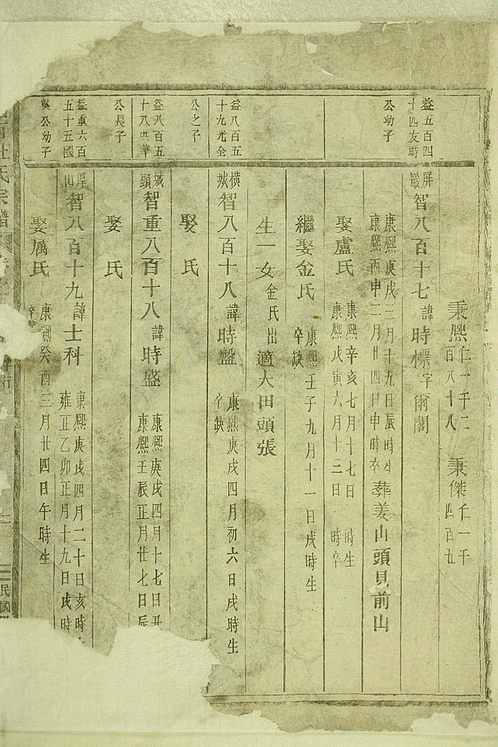 秉熙 仁一千二
百八十八
秉傑 仁一千
四百九
益五百四
十四友時
公幼子
屏
巖
智八百十七 諱時標字爾閣
康熙庚戌三月十九日辰時生
康熙丙申二月廿四日申時卒
葬姜山頭見前山
娶盧氏
康熙辛亥七月十七日 時生
康熙戊寅六月十三日 時卒
繼娶金氏
康熙壬子九月十一日戌時生
卒缺
生一女 金氏出 適大田頭張
益八百五
十九光全
公之子
橫
城
智八百十八 諱時盤
康熙庚戌四月初六日戌時生
卒缺
娶 氏
益八百五
十八洪華
公長子
城
頭
智重八百十八 諱時盛
康熙庚戌四月十七日丑
康熙壬辰正月廿七日辰
娶 氏
益重六百
五十五國
與公幼子
厚
山
智八百十九 諱士科
康熙庚戌四月二十日亥時
雍正乙卯正月十九日戌時
娶厲氏
康熙癸酉三月廿四日午時生
杜氏宗譜
民國